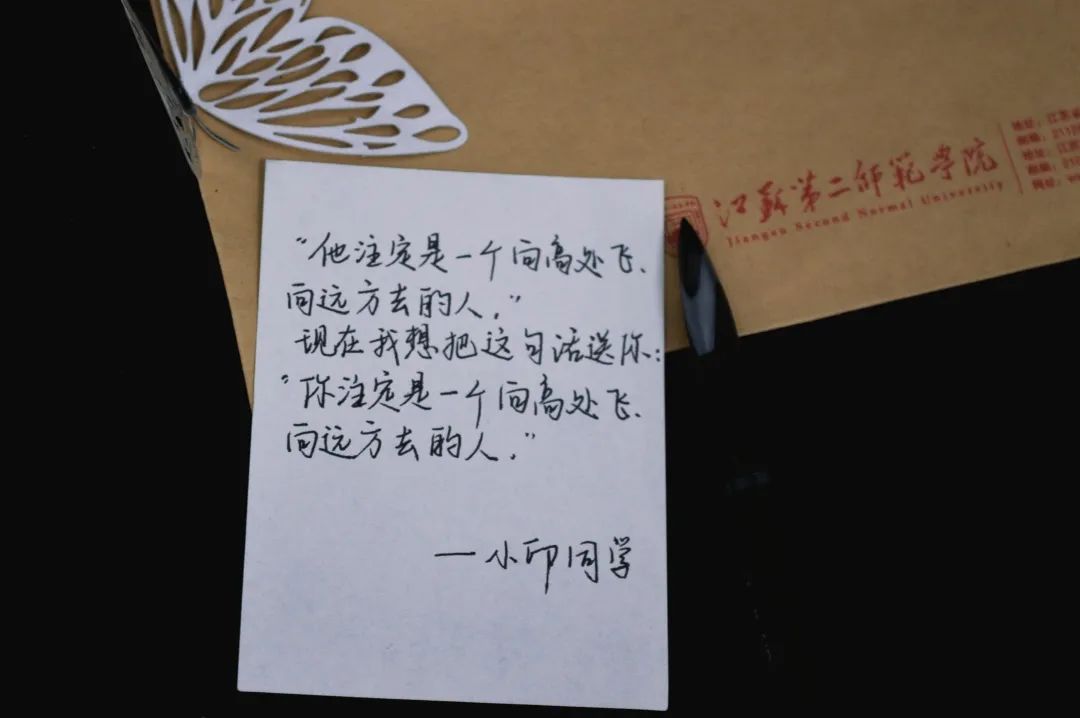 “他注定是一个向高处飞、
向远方去的人.”
现在我想把这句话送你:
“你注定是一个向高处飞、
向远方去的人.”
—小印同学
江苏第二师范学院
Jiangsu Second Normal University
地址：江苏
邮编：
地址：江苏
邮编：
网址：